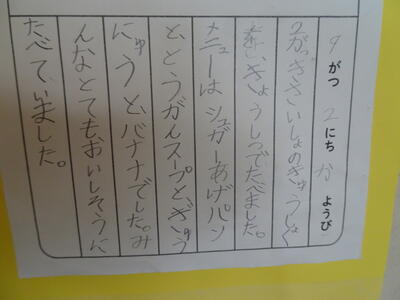 9がつ2にちかようび
2がっきさいしょのきゅうしょく
を、きょうしつでたべました。
メニューはシュガーあげパン
と、とうがんスープと、ぎゅう
にゅうと、バナナでした。み
んなとても、おいしそうに
たべていました。